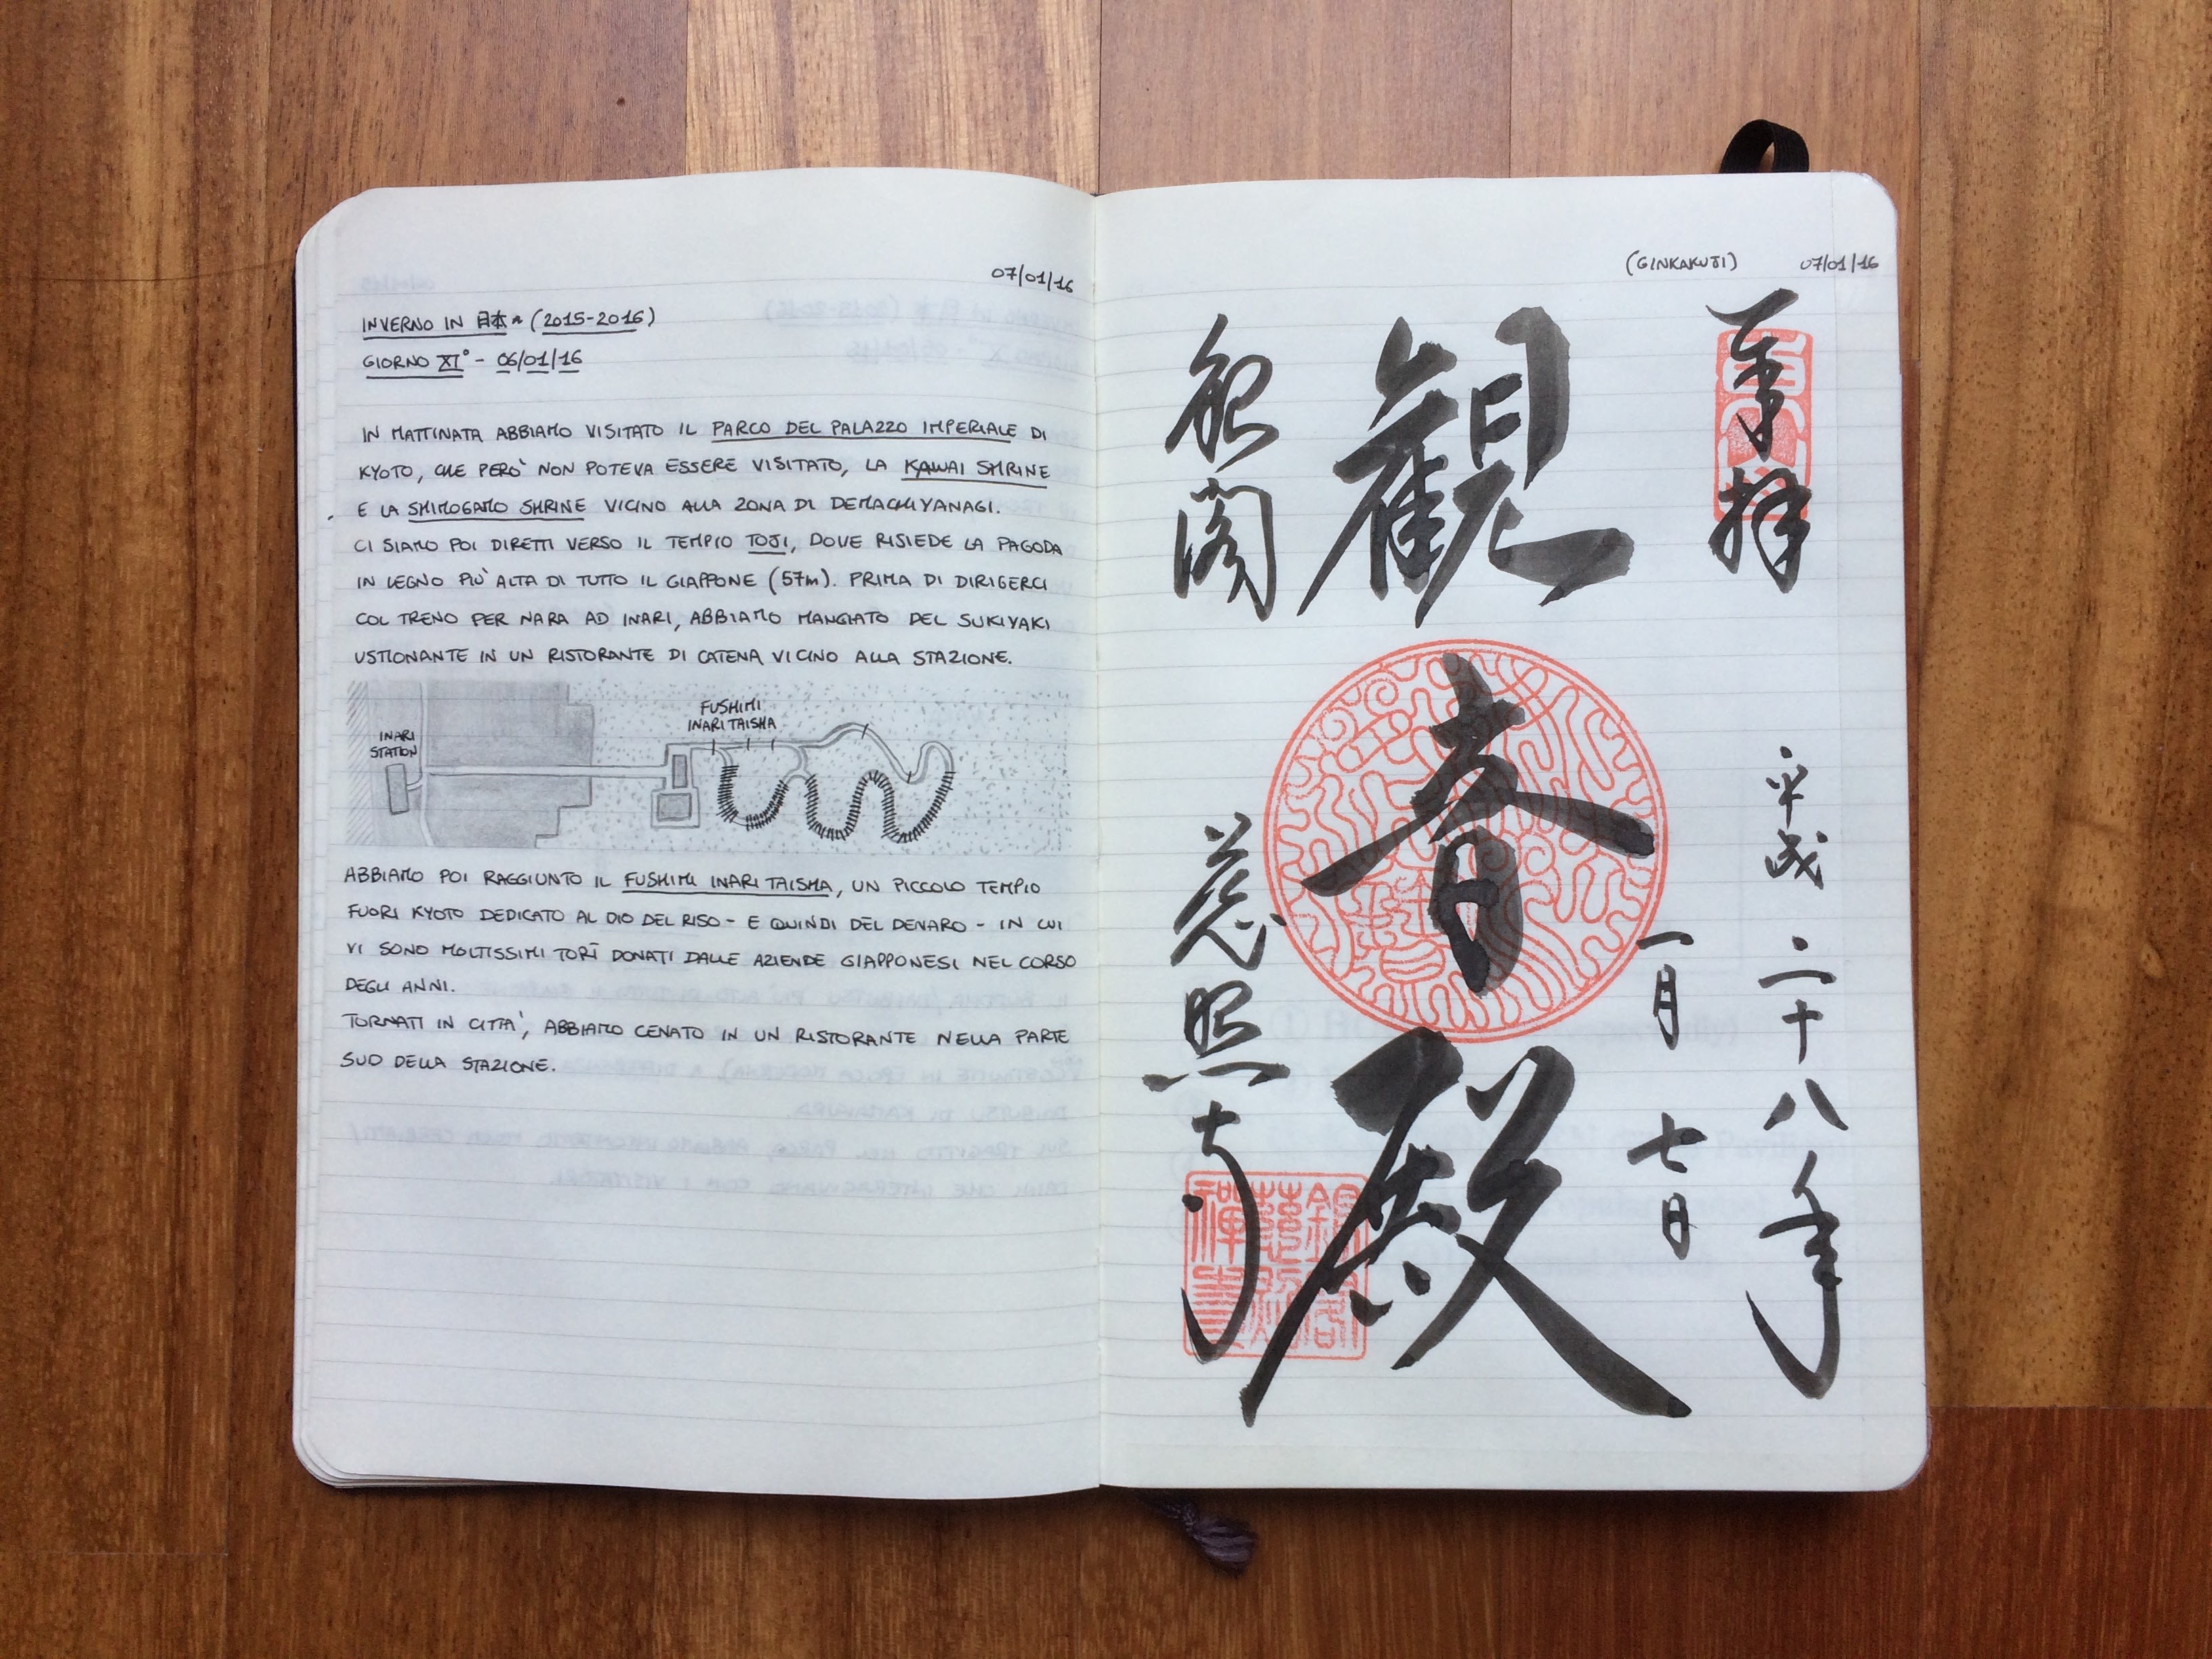 07/01/16
INVERNO IN 日本 (2015-2016)
GIORNO XI° - 06/01/16
IN MATTINATA ABBIAMO VISITATO IL PARCO DEL PALAZZO IMPERIALE DI
KYOTO, CHE PERÒ NON POTEVA ESSERE VISITATO, LA KAWAI SHRINE
E LA SHIMOGAMO SHRINE VICINO ALLA ZONA DI DEMACHIYANAGI.
CI SIAMO POI DIRETTI VERSO IL TEMPIO TOJI, DOVE RISIEDE LA PAGODA
IN LEGNO PIÙ ALTA DI TUTTO IL GIAPPONE (57m). PRIMA DI DIRIGERCI
COL TRENO PER NARA AD INARI, ABBIAMO MANGIATO DEL SUKIYAKI
USTIONANTE IN UN RISTORANTE DI CATENA VICINO ALLA STAZIONE.
INARI
STATION
FUSHIMI
INARI TAISHA
ABBIAMO POI RAGGIUNTO IL FUSHIMI INARI TAISHA, UN PICCOLO TEMPIO
FUORI KYOTO DEDICATO AL DIO DEL RISO - E QUINDI DEL DENARO - IN CUI
VI SONO MOLTISSIMI TORĪ DONATI DALLE AZIENDE GIAPPONESI NEL CORSO
DEGLI ANNI.
TORNATI IN CITTÀ, ABBIAMO CENATO IN UN RISTORANTE NELLA PARTE
SUD DELLA STAZIONE.
(GINKAKUJI) 07/01/16
奉拝
平成二十八年
一月七日
観音殿
銀閣
慈照寺